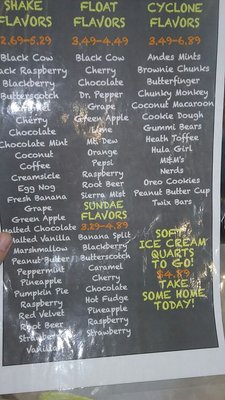 SHAKE
FLAVORS
2.69-5.29
Black Cow
Black Raspberry
Blackberry
Butterscotch
Cherry
Chocolate
Chocolate Mint
Coconut
Coffee
Creamsicle
Egg Nog
Fresh Banana
Grape
Green Apple
Malted Chocolate
Malted Vanilla
Marshmallow
Peanut Butter
Peppermint
Pineapple
Pumpkin Pie
Raspberry
Red Velvet
Root Beer
Strawberry
Vanilla
FLOAT
FLAVORS
3.49-4.49
Black Cow
Cherry
Chocolate
Dr. Pepper
Grape
Green Apple
Lime
Mt. Dew
Orange
Pepsi
Raspberry
Root Beer
Sierra Mist
SUNDAE
FLAVORS
3.29-4.89
Banana Split
Blackberry
Butterscotch
Caramel
Cherry
Chocolate
Hot Fudge
Pineapple
Raspberry
Strawberry
CYCLONE
FLAVORS
3.49-6.89
Andes Mints
Brownie Chunks
Butterfinger
Chunky Monkey
Coconut Macaroon
Cookie Dough
Gummi Bears
Heath Toffee
Hula Girl
M&M's
Nerds
Oreo Cookies
Peanut Butter Cup
Twix Bars
SOFT
ICE CREAM
QUARTS
TO GO!
$4.89
TAKE
SOME HOME
TODAY!